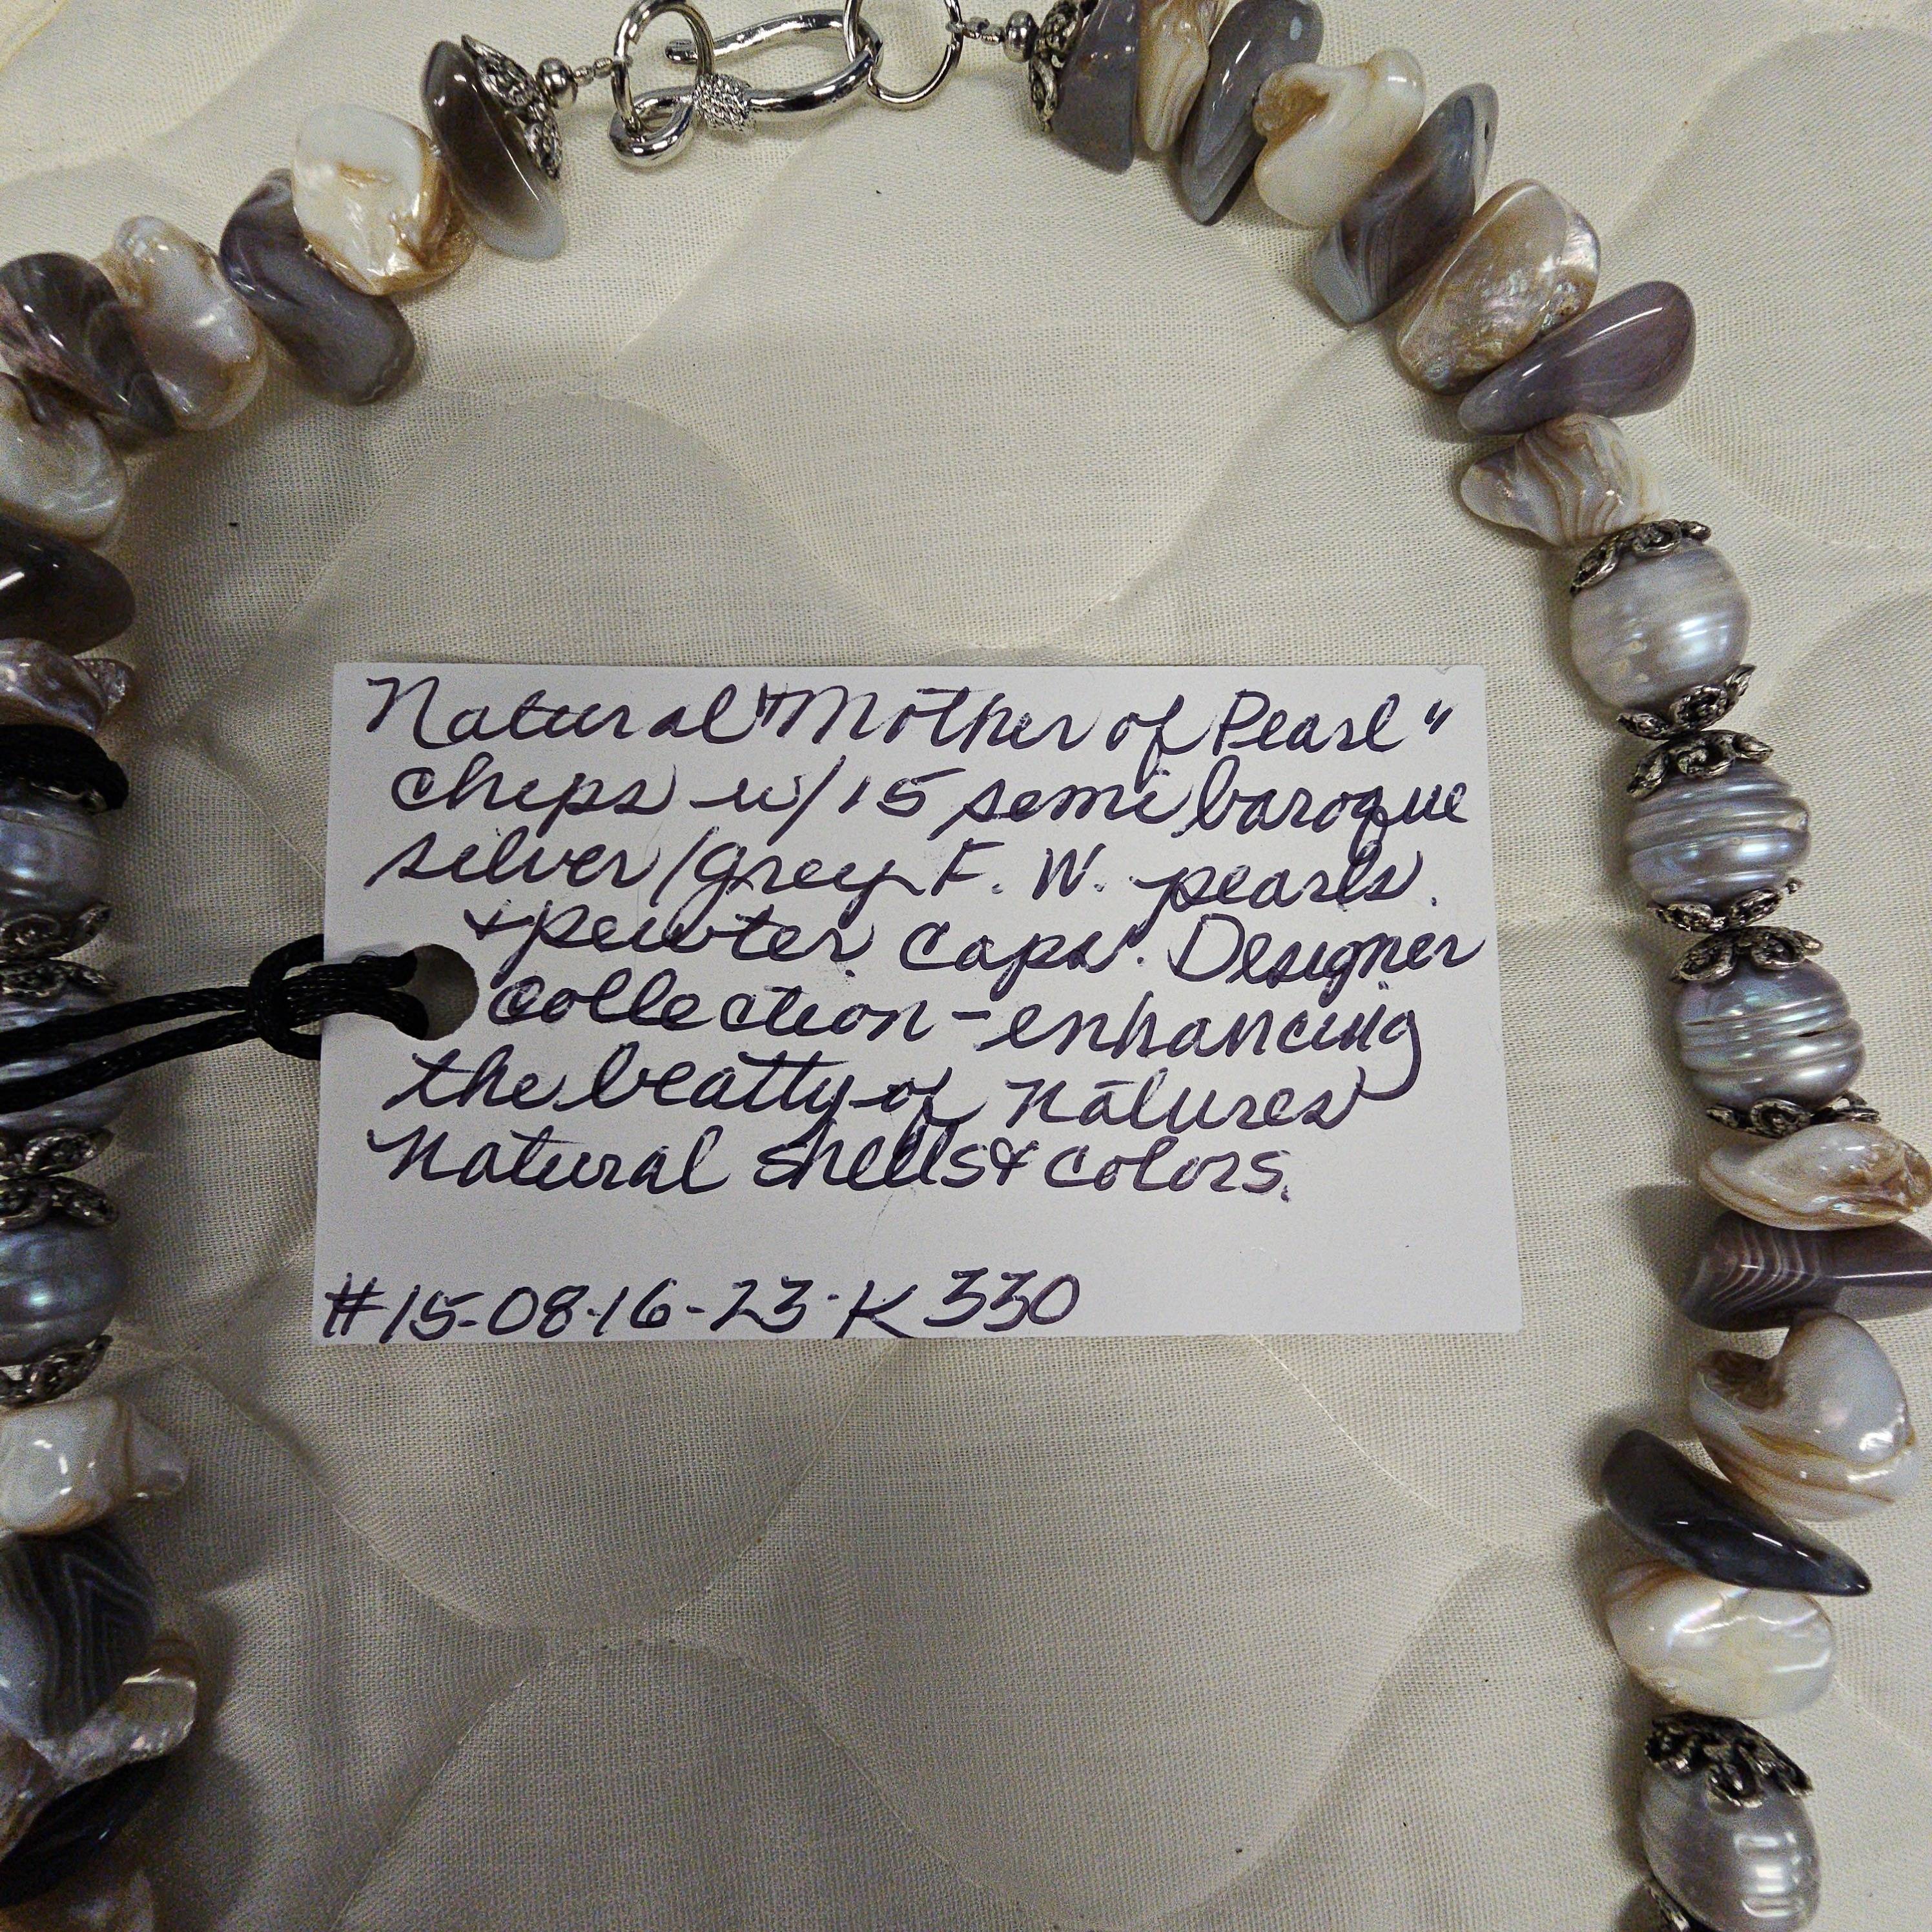 Natural "Mother of Pearl"
chips w/15 semi baroque
silver/grey F. W. pearls.
+ pewter caps. Designer
collection - enhancing
the beatty of Natures
Natural shells & colors.
#15-08-16-23-K330